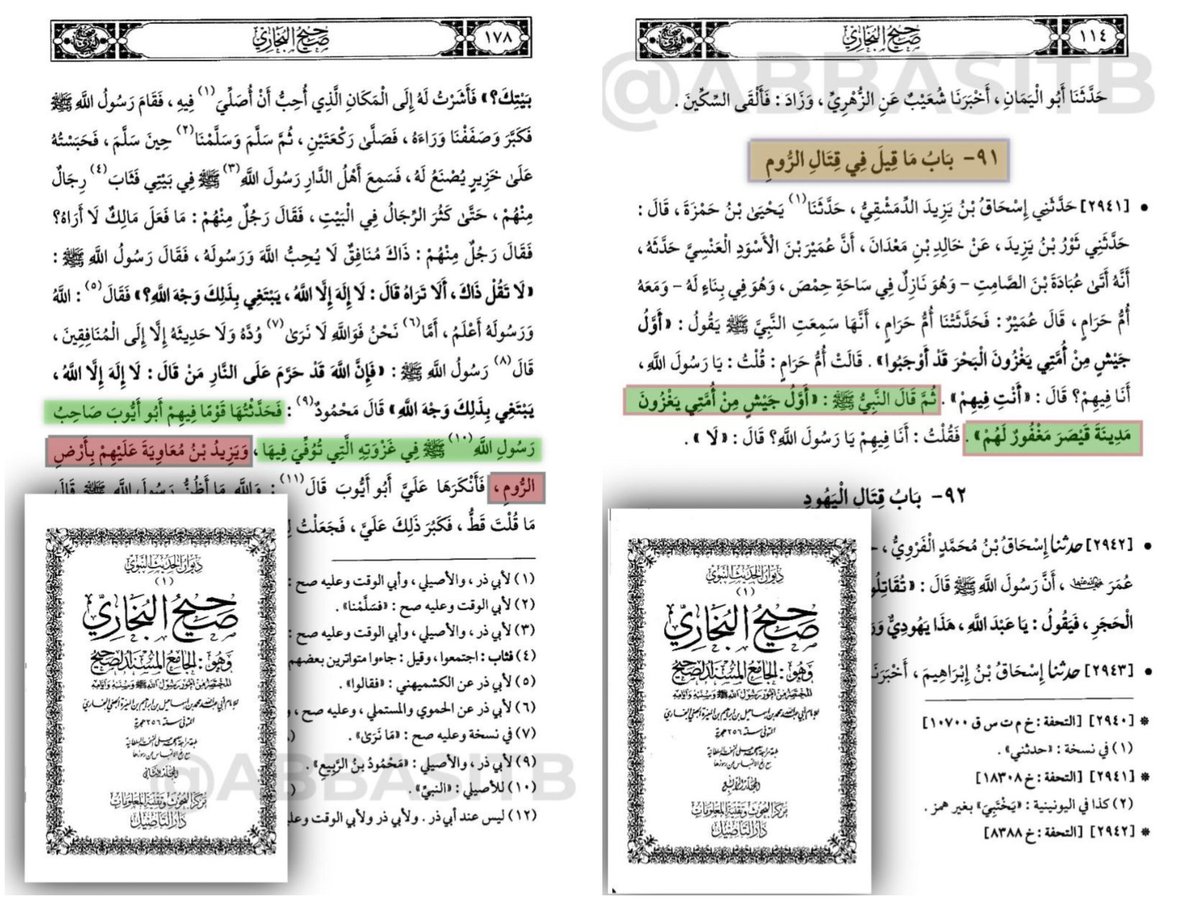 ١١٤
صحيح البخاري
حَدَّثَنَا أَبُو الْيَمَانِ ، أَخْبَرَنَا شُعَيْبٌ عَنِ الزُّهْرِيِّ ، وَزَادَ : فَأَلْقَى السِّكِّينَ .
٩١- بَابُ مَا قِيلَ فِي قِتَالِ الرُّومِ
• [٢٩٤١] حَدَّثَنِي إِسْحَاقُ بْنُ يَزِيدَ الدِّمَشْقِيُّ ، حَدَّثَنَا(١) يَحْيَىٰ بْنُ حَمْزَةَ ، قَالَ :
حَدَّثَنِي ثَوْرُ بْنُ يَزِيدَ ، عَنْ خَالِدِ بْنِ مَعْدَانَ ، أَنَّ عُمَيْرَ بْنَ الْأَسْوَدِ الْعَنْسِيَّ حَدَّثَهُ ،
أَنَّهُ أَتَىٰ عُبَادَةَ بْنَ الصَّامِتِ - وَهُوَ نَازِلٌ فِي سَاحَةِ حِمْصَ ، وَهُوَ فِي بِنَاءٍ لَهُ - وَمَعَهُ
أُمُّ حَرَامٍ ، قَالَ عُمَيْرٌ : فَحَدَّثَتْنَا أُمُّ حَرَامٍ ، أَنَّهَا سَمِعَتِ النَّبِيَّ ﷺ يَقُولُ : «أَوَّلُ
جَيْشٍ مِنْ أُمَّتِي يَغْزُونَ الْبَحْرَ قَدْ أَوْجَبُوا» . قَالَتْ أُمُّ حَرَامٍ : قُلْتُ : يَا رَسُولَ اللَّهِ ،
أَنَا فِيهِمْ؟ قَالَ : «أَنْتِ فِيهِمْ» . ثُمَّ قَالَ النَّبِيُّ ﷺ : «أَوَّلُ جَيْشٍ مِنْ أُمَّتِي يَغْزُونَ
مَدِينَةَ قَيْصَرَ مَغْفُورٌ لَهُمْ» . فَقُلْتُ : أَنَا فِيهِمْ يَا رَسُولَ اللَّهِ؟ قَالَ : «لَا» .
٩٢- بَابُ قِتَالِ الْيَهُودِ
• [٢٩٤٢] حدثنا إِسْحَاقُ بْنُ مُحَمَّدٍ الْفَرْوِيُّ ،
عُمَرَ ، أَنَّ رَسُولَ اللَّهِ ﷺ قَالَ : «تُقَاتِلُو
الْحَجَرِ ، فَيَقُولُ : يَا عَبْدَ اللَّهِ ، هَذَا يَهُودِيٌّ وَرَ
• [٢٩٤٣] حدثنا إِسْحَاقُ بْنُ إِبْرَاهِيمَ ، أَخْبَرَنَ
* [٢٩٤٠] [التحفة : خ م ت س ق ١٠٧٠٠]
(١) في نسخة : «حدثني» .
* [٢٩٤١] [التحفة : خ ١٨٣٠٨]
(٢) كذا في اليونينية : «يَخْتَبِيَ» بغير همز .
* [٢٩٤٢] [التحفة : خ ٨٣٨٨]
ديوان الحديث النبوي
(١)
صحيح البخاري
وهو : الجامع المسند الصحيح
مركز البحوث وتقنية المعلومات
دار التأصيل
١٧٨
صحيح البخاري
بَيْتِكَ؟» فَأَشَرْتُ لَهُ إِلَى الْمَكَانِ الَّذِي أُحِبُّ أَنْ أُصَلِّيَ(١) فِيهِ ، فَقَامَ رَسُولُ اللَّهِ ﷺ
فَكَبَّرَ وَصَفَفْنَا وَرَاءَهُ ، فَصَلَّىٰ رَكْعَتَيْنِ ، ثُمَّ سَلَّمَ وَسَلَّمْنَا(٢) حِينَ سَلَّمَ ، فَحَبَسْتُهُ
عَلَىٰ خَزِيرٍ يُصْنَعُ لَهُ ، فَسَمِعَ أَهْلُ الدَّارِ رَسُولَ اللَّهِ(٣) ﷺ فِي بَيْتِي فَثَابَ(٤) رِجَالٌ
مِنْهُمْ ، حَتَّىٰ كَثُرَ الرِّجَالُ فِي الْبَيْتِ ، فَقَالَ رَجُلٌ مِنْهُمْ : مَا فَعَلَ مَالِكٌ لَا أَرَاهُ؟
فَقَالَ رَجُلٌ مِنْهُمْ : ذَاكَ مُنَافِقٌ لَا يُحِبُّ اللَّهَ وَرَسُولَهُ ، فَقَالَ رَسُولُ اللَّهِ ﷺ :
«لَا تَقُلْ ذَاكَ ، أَلَا تَرَاهُ قَالَ : لَا إِلَهَ إِلَّا اللَّهُ ، يَبْتَغِي بِذَلِكَ وَجْهَ اللَّهِ؟» فَقَالَ(٥) : اللَّهُ
وَرَسُولُهُ أَعْلَمُ ، أَمَّا(٦) نَحْنُ فَوَاللَّهِ لَا نَرَىٰ(٧) وُدَّهُ وَلَا حَدِيثَهُ إِلَّا إِلَى الْمُنَافِقِينَ ،
قَالَ(٨) رَسُولُ اللَّهِ ﷺ : «فَإِنَّ اللَّهَ قَدْ حَرَّمَ عَلَى النَّارِ مَنْ قَالَ : لَا إِلَهَ إِلَّا اللَّهُ ،
يَبْتَغِي بِذَلِكَ وَجْهَ اللَّهِ» قَالَ مَحْمُودٌ(٩) : فَحَدَّثْتُهَا قَوْمًا فِيهِمْ أَبُو أَيُّوبَ صَاحِبُ
رَسُولِ اللَّهِ(١٠) ﷺ فِي غَزْوَتِهِ الَّتِي تُوُفِّيَ فِيهَا ، وَيَزِيدُ بْنُ مُعَاوِيَةَ عَلَيْهِمْ بِأَرْضِ
الرُّومِ ، فَأَنْكَرَهَا عَلَيَّ أَبُو أَيُّوبَ قَالَ(١١) : وَاللَّهِ مَا أَظُنُّ رَسُولَ اللَّهِ ﷺ قَالَ
مَا قُلْتَ قَطُّ ، فَكَبُرَ ذَلِكَ عَلَيَّ ، فَجَعَلْتُ لِ
(١) لأبي ذر ، والأصيلي ، وأبي الوقت وعليه صح :
(٢) لأبي الوقت وعليه صح : «فَسَلَّمْنَا» .
(٣) لأبي ذر ، والأصيلي ، وأبي الوقت وعليه صح :
(٤) فثاب : اجتمعوا ، وقيل : جاءوا متواترين بعضهم
(٥) لأبي ذر عن الكشميهني : «فقالوا» .
(٦) لأبي ذر عن الحموي والمستملي ، وعليه صح ،
(٧) في نسخة وعليه صح : «مَا نَرَىٰ» .
(٩) لأبي ذر ، والأصيلي : «مَحْمُودُ بْنُ الرَّبِيعِ» .
(١٠) للأصيلي : «النبيِّ» .
(١٢) ليس عند أبي ذر . ولأبي ذر ولأبي الوقت وعليه
ديوان الحديث النبوي
(١)
صحيح البخاري
وهو : الجامع المسند الصحيح
مركز البحوث وتقنية المعلومات
دار التأصيل
@ABBASITB
@ABBASITB